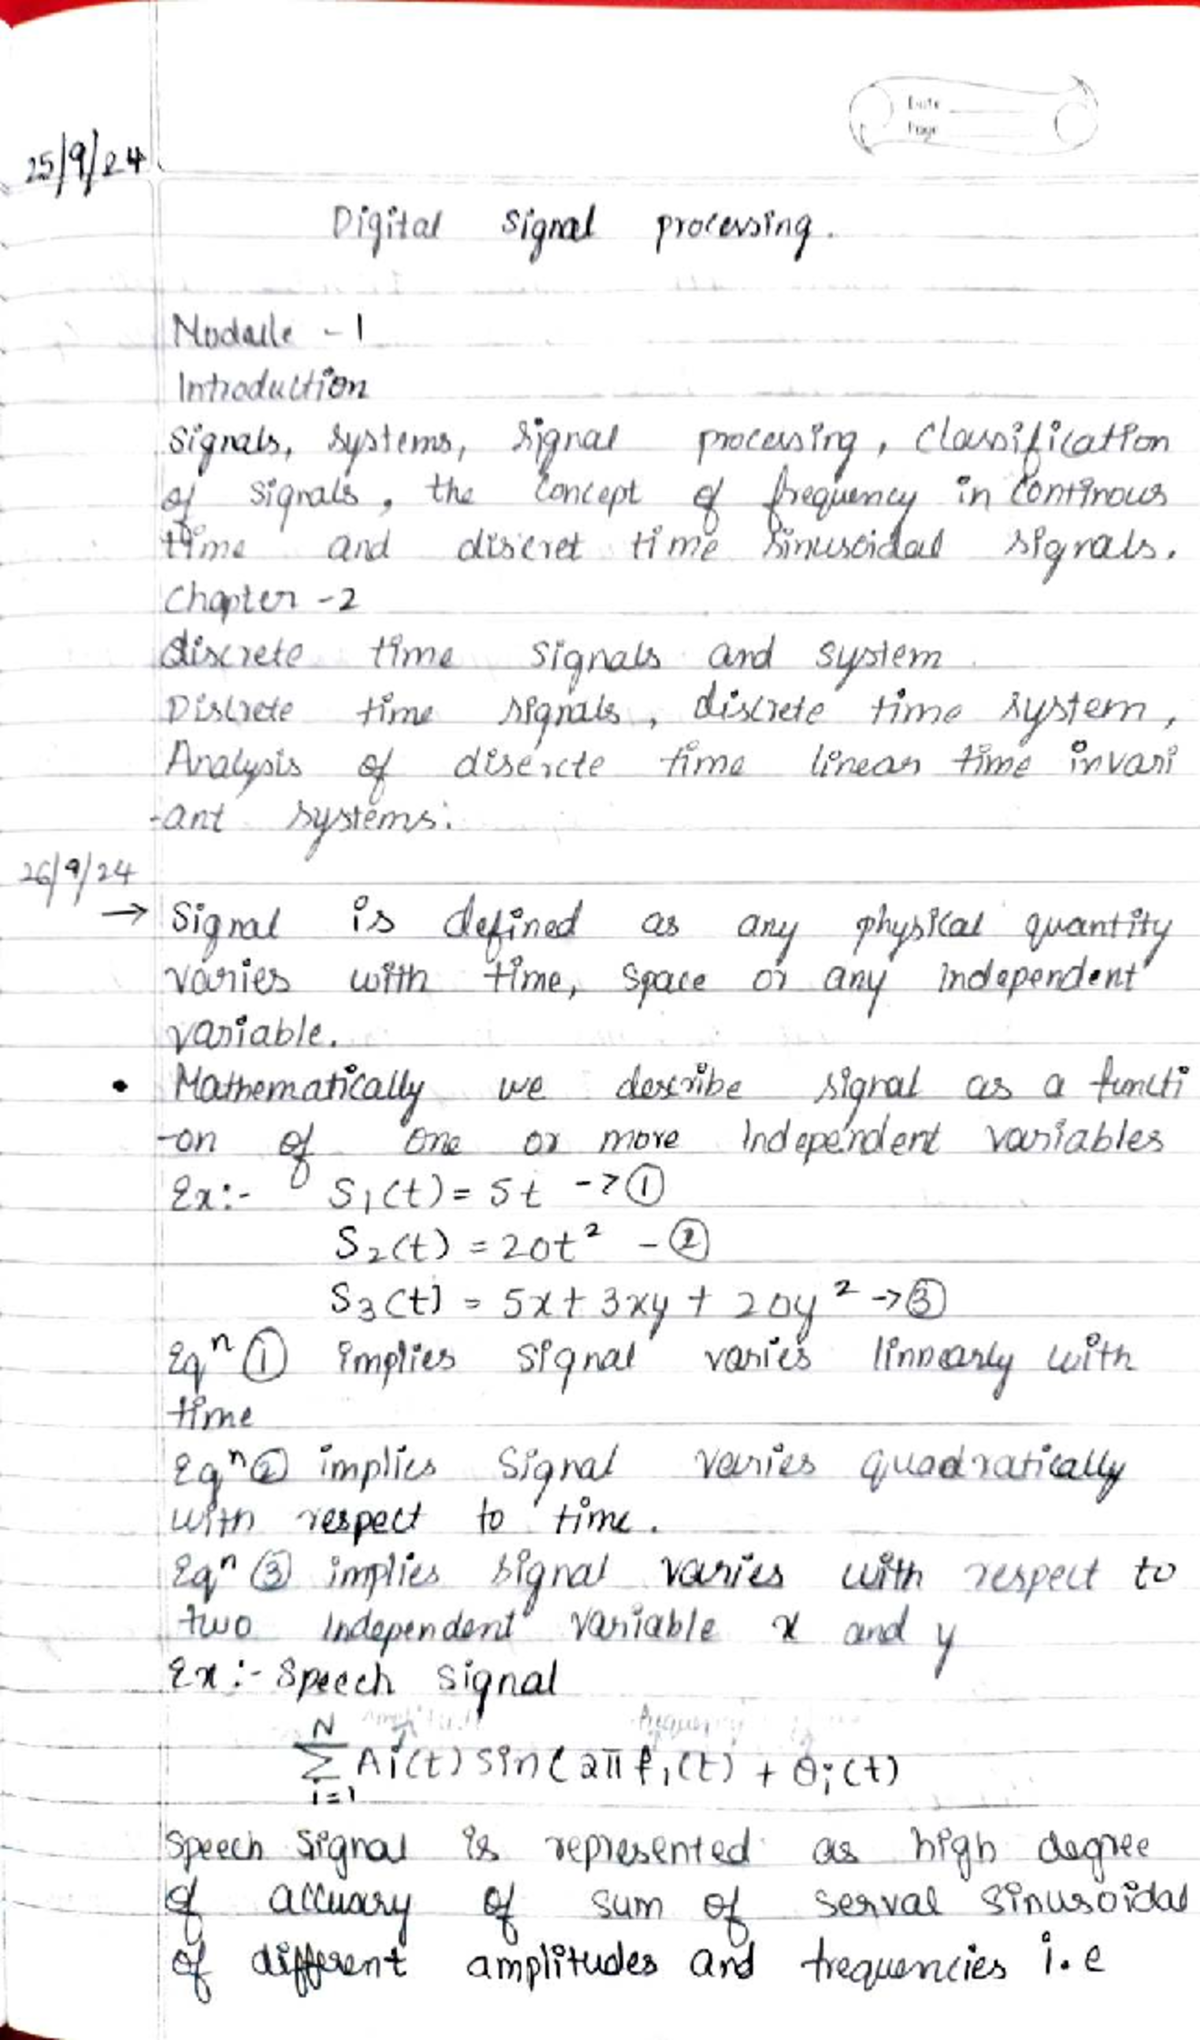 Date
Page
25/9/24
Digital Signal processing.
Module - 1
Introduction
Signals, systems, signal processing, Classification
of signals, the concept of frequency in continous
time and discret time sinusoidal signals.
Chapter - 2
discrete time signals and system
Discrete time signals, discrete time system,
Analysis of discrete time linear time invari
-ant systems.
26/9/24
→ Signal is defined as any physical quantity
varies with time, space or any independent
variable.
• Mathematically we describe signal as a functi
-on of one or more independent variables
Ex:- S₁(t) = 5t -> ①
S₂(t) = 20t² - ②
S₃(t) = 5x + 3xy + 20y² -> ③
Eqⁿ ① implies signal varies linnearly with
time
Eqⁿ ② implies signal varies quadratically
with respect to time.
Eqⁿ ③ implies signal varies with respect to
two independent variable x and y
Ex:- Speech signal
amplitude frequency
N
∑ Ai(t) sin(2πfi(t) + θi(t)
i=1
Speech signal is represented as high degree
of accuary of sum of serval sinusoidal
of different amplitudes and frequencies i.e